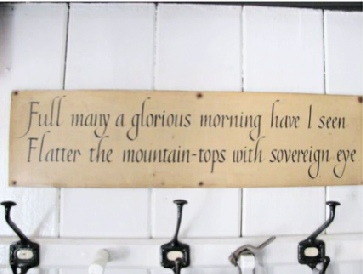 Full many a glorious morning have I seen
Flatter the mountain-tops with sovereign eye